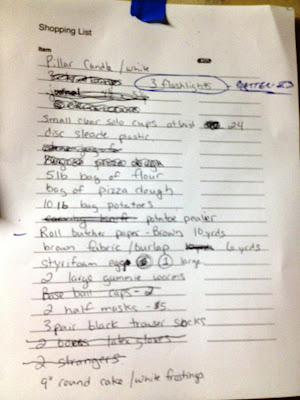 Shopping List
Item
Pillar Candle / white
3 flashlights - BATTERIES
small clear solo cups at least 24
disc sleave plastic
5lb bag of flour
bag of pizza dough
10 lb bag potatoes
potatoe pealer
Roll butcher paper - Brown 10 yrds
brown fabric / burlap 6 yrds
styrifoam eggs 1 large
2 large gummie worms
Base ball caps - 2
2 half masks - $5
3 pair black trouser socks
2 boxes latex gloves
2 strangers
9" round cake / white frostings